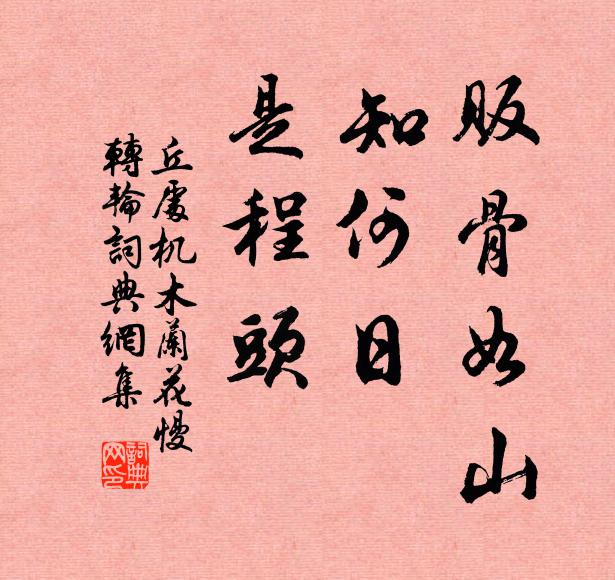 販骨如山
知何日
是程頭
丘處机木蘭花慢
轉輪詞典網集
詞典網印